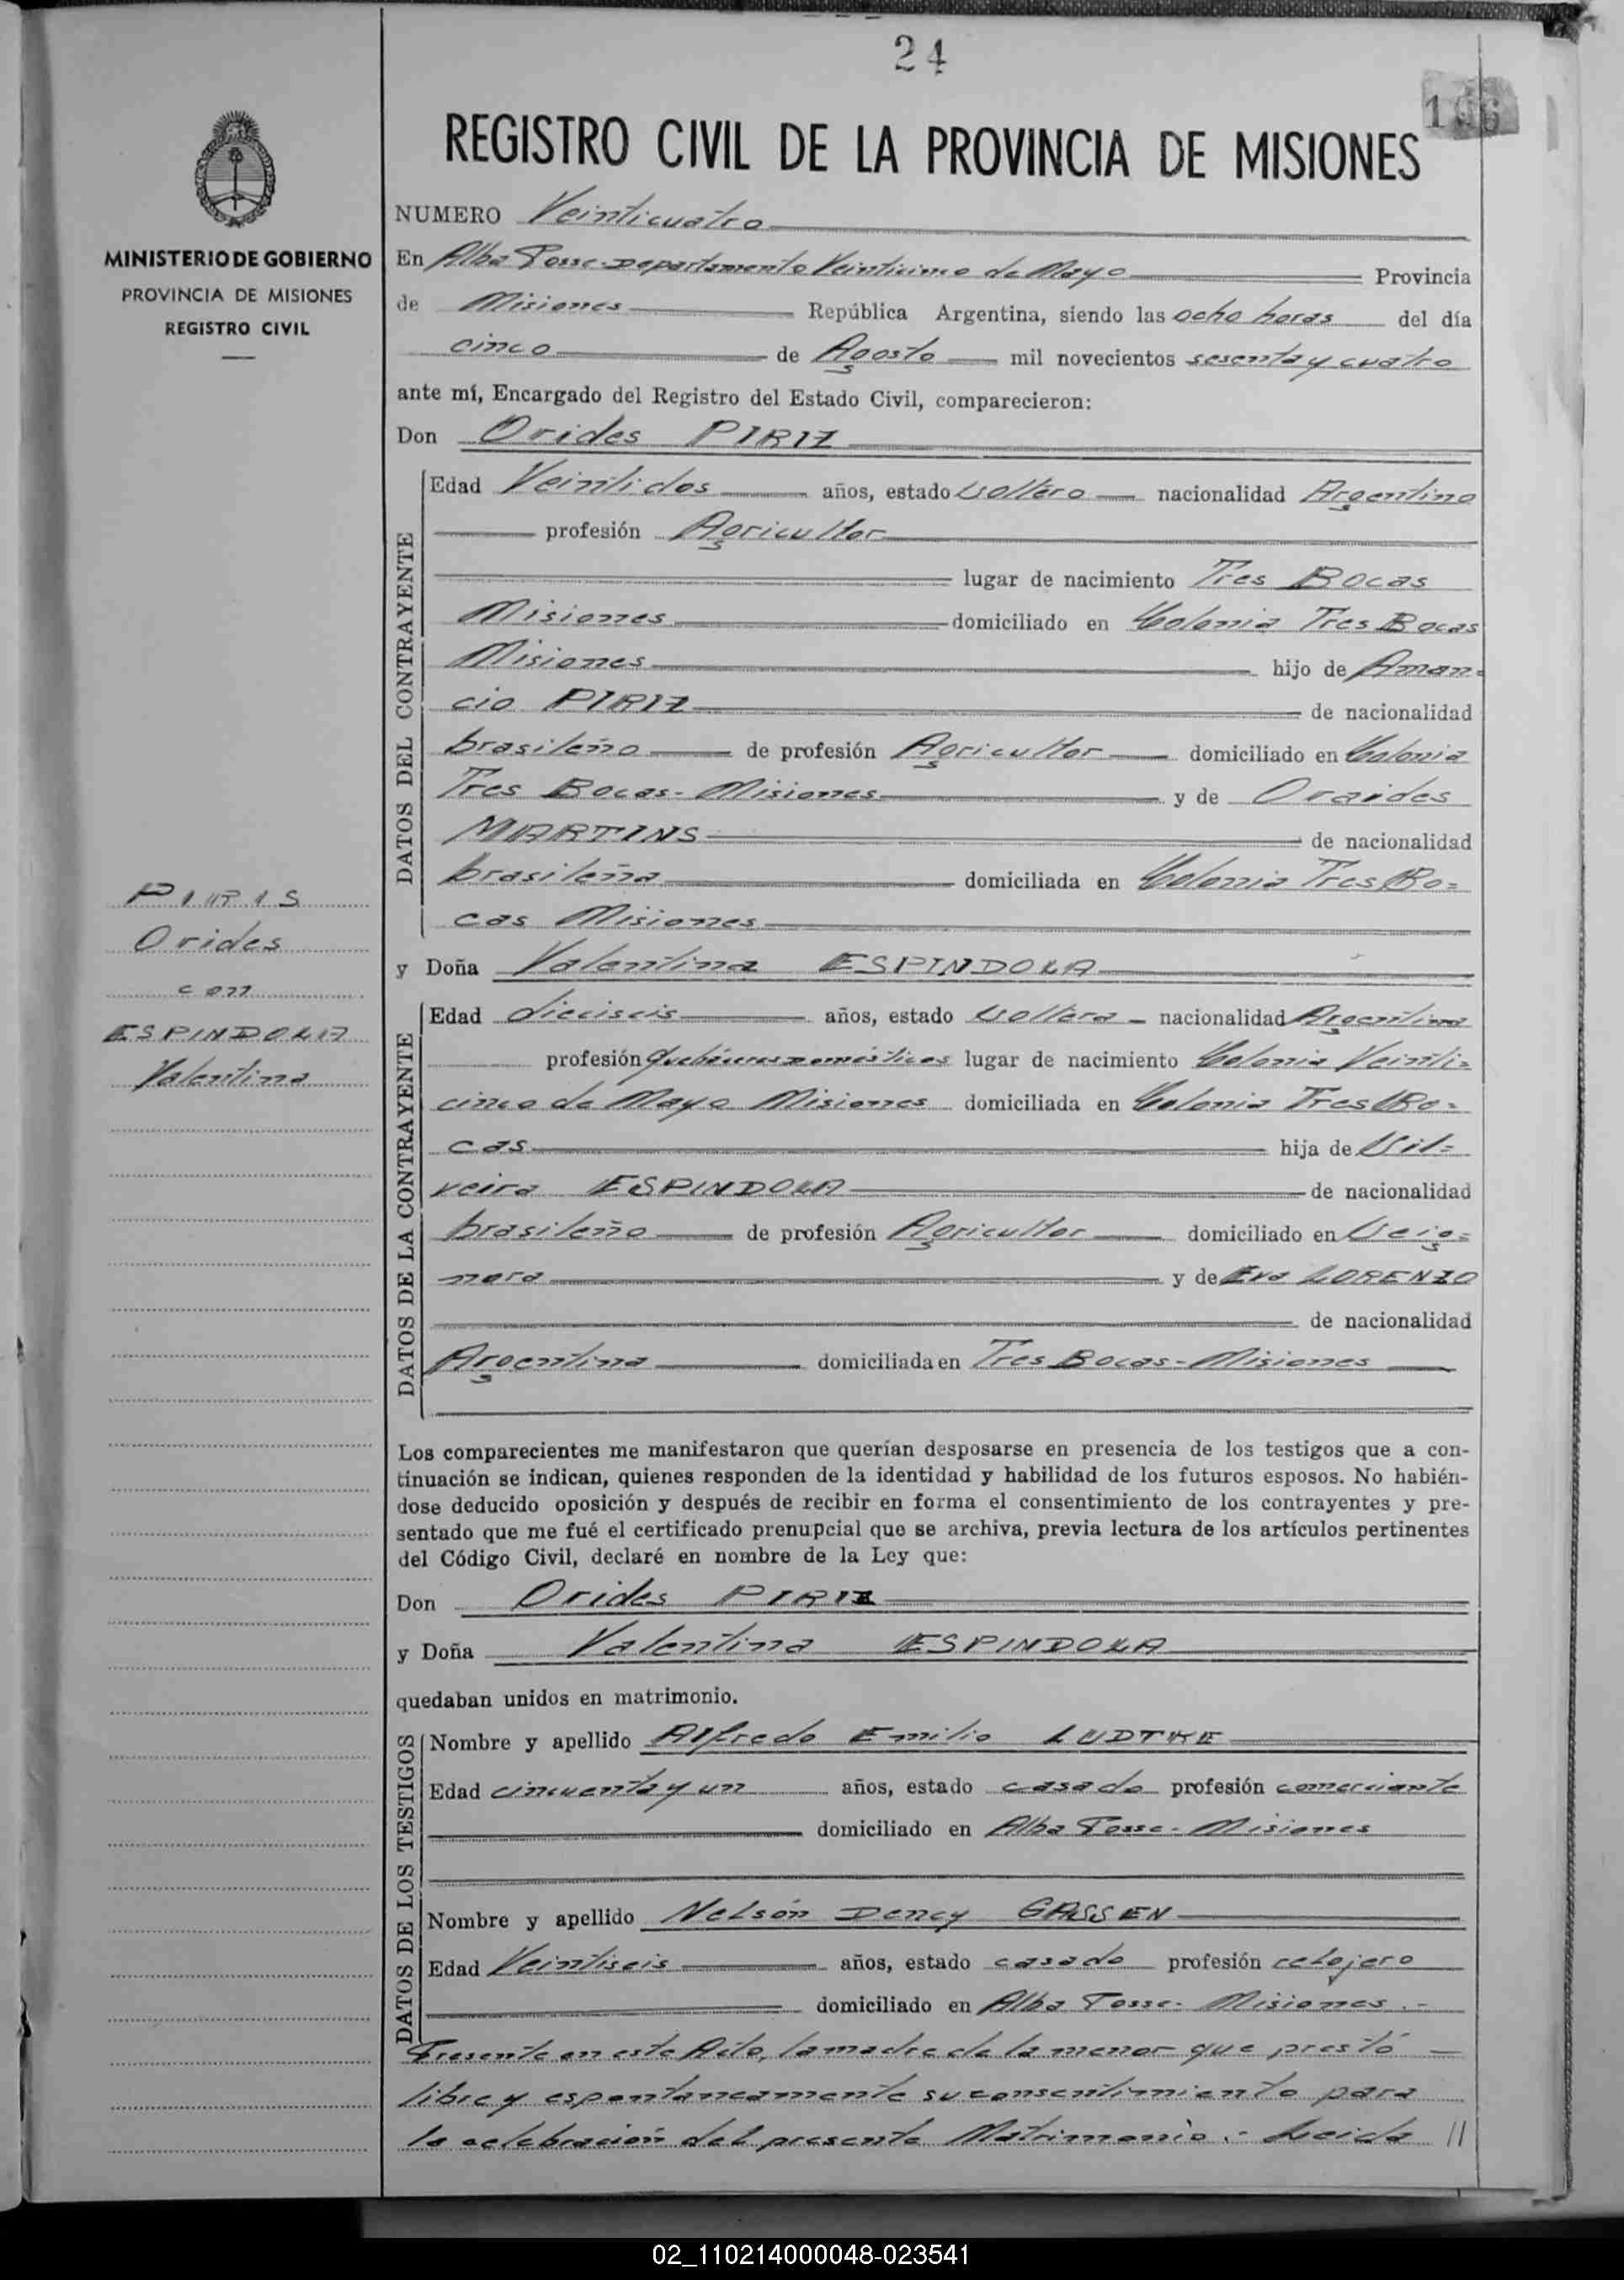 24
REGISTRO CIVIL DE LA PROVINCIA DE MISIONES
MINISTERIO DE GOBIERNO
PROVINCIA DE MISIONES
REGISTRO CIVIL
NUMERO Veinticuatro
En Alba Posse-Departamento Veinticinco de Mayo Provincia
de Misiones República Argentina, siendo las ocho horas del día
cinco de Agosto mil novecientos sesenta y cuatro
ante mí, Encargado del Registro del Estado Civil, comparecieron:
Don Orides PIRIZ
DATOS DEL CONTRAYENTE
Edad Veintidos años, estado soltero nacionalidad Argentino
profesión Agricultor
lugar de nacimiento Tres Bocas
Misiones domiciliado en Colonia Tres Bocas
Misiones hijo de Aman-
cio PIRIZ de nacionalidad
brasileño de profesión Agricultor domiciliado en Colonia
Tres Bocas-Misiones y de Oraides
MARTINS de nacionalidad
brasileña domiciliada en Colonia Tres Bo=
cas Misiones
PIRIS
Orides
con
ESPINDOLA
Valentina
y Doña Valentina ESPINDOLA
DATOS DE LA CONTRAYENTE
Edad dieciseis años, estado soltera nacionalidad Argentina
profesión Quehaceres domésticos lugar de nacimiento Colonia Veinti=
cinco de Mayo Misiones domiciliada en Colonia Tres Bo=
cas hija de Sil=
veira ESPINDOLA de nacionalidad
brasileño de profesión Agricultor domiciliado en
y de Eva LORENZO
de nacionalidad
Argentina domiciliada en Tres Bocas-Misiones
Los comparecientes me manifestaron que querían desposarse en presencia de los testigos que a con-
tinuación se indican, quienes responden de la identidad y habilidad de los futuros esposos. No habién-
dose deducido oposición y después de recibir en forma el consentimiento de los contrayentes y pre-
sentado que me fué el certificado prenupcial que se archiva, previa lectura de los artículos pertinentes
del Código Civil, declaré en nombre de la Ley que:
Don Orides PIRIZ
y Doña Valentina ESPINDOLA
quedaban unidos en matrimonio.
DATOS DE LOS TESTIGOS
Nombre y apellido Alfredo Emilio LUDTKE
Edad cincuenta y un años, estado casado profesión comerciante
domiciliado en Alba Posse-Misiones
Nombre y apellido Nelsón Dency GASSEN
Edad Veintiseis años, estado casado profesión relojero
domiciliado en Alba Posse-Misiones.-
Presente en este Acto, la madre de la menor que prestó
libre y espontaneamente su consentimiento para
la celebración del presente Matrimonio.- Leida //
02_110214000048-023541